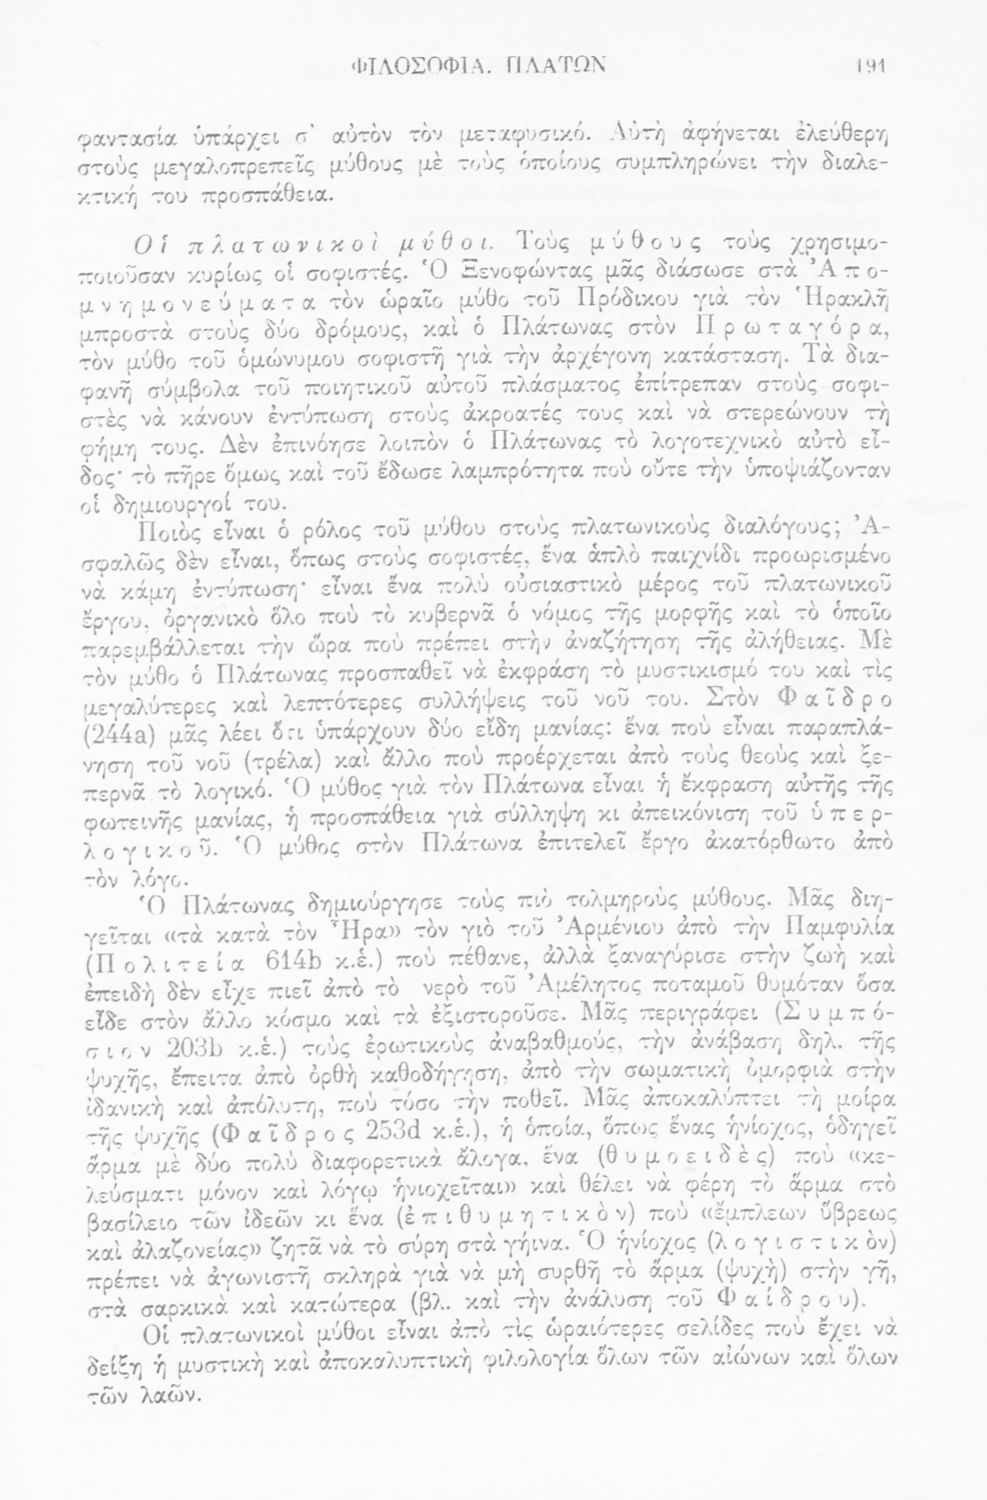 ΦΙΛΟΣΟΦΙΑ. ΠΛΑΤΩΝ 191
φαντασία ὑπάρχει σ᾿ αὐτὸν τὸν μεταφυσικό. Αὐτὴ ἀφήνεται ἐλεύθερη
στοὺς μεγαλοπρεπεῖς μύθους μὲ τοὺς ὁποίους συμπληρώνει τὴν διαλε-
κτική του προσπάθεια.
Οἱ πλατωνικοὶ μύθοι. Τοὺς μύθους τοὺς χρησιμο-
ποιοῦσαν κυρίως οἱ σοφιστές. Ὁ Ξενοφώντας μᾶς διάσωσε στὰ Ἀπο-
μνημονεύματα τὸν ὡραῖο μύθο τοῦ Πρόδικου γιὰ τὸν Ἡρακλῆ
μπροστὰ στοὺς δύο δρόμους, καὶ ὁ Πλάτωνας στὸν Πρωταγόρα,
τὸν μύθο τοῦ ὁμώνυμου σοφιστῆ γιὰ τὴν ἀρχέγονη κατάσταση. Τὰ δια-
φανῆ σύμβολα τοῦ ποιητικοῦ αὐτοῦ πλάσματος ἐπίτρεπαν στοὺς σοφι-
στὲς νὰ κάνουν ἐντύπωση στοὺς ἀκροατές τους καὶ νὰ στερεώνουν τὴ
φήμη τους. Δὲν ἐπινόησε λοιπὸν ὁ Πλάτωνας τὸ λογοτεχνικὸ αὐτὸ εἶ-
δος· τὸ πῆρε ὅμως καὶ τοῦ ἔδωσε λαμπρότητα ποὺ οὔτε τὴν ὑποψιάζονταν
οἱ δημιουργοί του.
Ποιὸς εἶναι ὁ ρόλος τοῦ μύθου στοὺς πλατωνικοὺς διαλόγους; Ἀ-
σφαλῶς δὲν εἶναι, ὅπως στοὺς σοφιστές, ἕνα ἁπλὸ παιχνίδι προωρισμένο
νὰ κάμη ἐντύπωση· εἶναι ἕνα πολὺ οὐσιαστικὸ μέρος τοῦ πλατωνικοῦ
ἔργου, ὀργανικὸ ὅλο ποὺ τὸ κυβερνᾶ ὁ νόμος τῆς μορφῆς καὶ τὸ ὁποῖο
παρεμβάλλεται τὴν ὥρα ποὺ πρέπει στὴν ἀναζήτηση τῆς ἀλήθειας. Μὲ
τὸν μύθο ὁ Πλάτωνας προσπαθεῖ νὰ ἐκφράση τὸ μυστικισμό του καὶ τὶς
μεγαλύτερες καὶ λεπτότερες συλλήψεις τοῦ νοῦ του. Στὸν Φαῖδρο
(244a) μᾶς λέει ὅτι ὑπάρχουν δύο εἴδη μανίας: ἕνα ποὺ εἶναι παραπλά-
νηση τοῦ νοῦ (τρέλα) καὶ ἄλλο ποὺ προέρχεται ἀπὸ τοὺς θεοὺς καὶ ξε-
περνᾶ τὸ λογικό. Ὁ μύθος γιὰ τὸν Πλάτωνα εἶναι ἡ ἔκφραση αὐτῆς τῆς
φωτεινῆς μανίας, ἡ προσπάθεια γιὰ σύλληψη κι ἀπεικόνιση τοῦ ὑπερ-
λογικοῦ. Ὁ μύθος στὸν Πλάτωνα ἐπιτελεῖ ἔργο ἀκατόρθωτο ἀπὸ
τὸν λόγο.
Ὁ Πλάτωνας δημιούργησε τοὺς πιὸ τολμηροὺς μύθους. Μᾶς διη-
γεῖται «τὰ κατὰ τὸν Ἦρα» τὸν γιὸ τοῦ Ἀρμένιου ἀπὸ τὴν Παμφυλία
(Πολιτεία 614b κ.ἑ.) ποὺ πέθανε, ἀλλὰ ξαναγύρισε στὴν ζωὴ καὶ
ἐπειδὴ δὲν εἶχε πιεῖ ἀπὸ τὸ νερὸ τοῦ Ἀμέλητος ποταμοῦ θυμόταν ὅσα
εἶδε στὸν ἄλλο κόσμο καὶ τὰ ἐξιστοροῦσε. Μᾶς περιγράφει (Συμπό-
σιον 203b κ.ἑ.) τοὺς ἐρωτικοὺς ἀναβαθμούς, τὴν ἀνάβαση δηλ. τῆς
ψυχῆς, ἔπειτα ἀπὸ ὀρθὴ καθοδήγηση, ἀπὸ τὴν σωματικὴ ὀμορφιὰ στὴν
ἰδανικὴ καὶ ἀπόλυτη, ποὺ τόσο τὴν ποθεῖ. Μᾶς ἀποκαλύπτει τὴ μοίρα
τῆς ψυχῆς (Φαῖδρος 253d κ.ἑ.), ἡ ὁποία, ὅπως ἕνας ἡνίοχος, ὁδηγεῖ
ἅρμα μὲ δύο πολὺ διαφορετικὰ ἄλογα, ἕνα (θυμοειδὲς) ποὺ «κε-
λεύσματι μόνον καὶ λόγῳ ἡνιοχεῖται» καὶ θέλει νὰ φέρη τὸ ἅρμα στὸ
βασίλειο τῶν ἰδεῶν κι ἕνα (ἐπιθυμητικὸν) ποὺ «ἔμπλεων ὕβρεως
καὶ ἀλαζονείας» ζητᾶ νὰ τὸ σύρη στὰ γήινα. Ὁ ἡνίοχος (λογιστικὸν)
πρέπει νὰ ἀγωνιστῆ σκληρὰ γιὰ νὰ μὴ συρθῆ τὸ ἅρμα (ψυχὴ) στὴν γῆ,
στὰ σαρκικὰ καὶ κατώτερα (βλ. καὶ τὴν ἀνάλυση τοῦ Φαίδρου).
Οἱ πλατωνικοὶ μύθοι εἶναι ἀπὸ τὶς ὡραιότερες σελίδες ποὺ ἔχει νὰ
δείξη ἡ μυστικὴ καὶ ἀποκαλυπτικὴ φιλολογία ὅλων τῶν αἰώνων καὶ ὅλων
τῶν λαῶν.